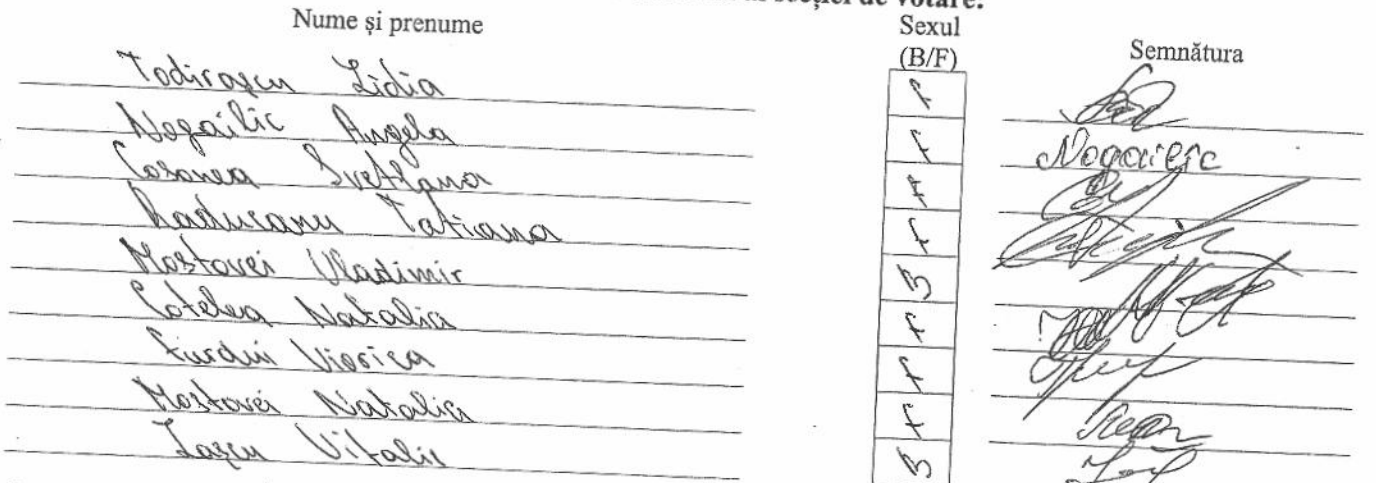 secției de votare:
Nume și prenume Sexul (B/F) Semnătura
Todirașcu Lidia F
Nogailîc Angela F Nogailîc
Cosanea Svetlana F
Raducanu Tatiana F
Mostovei Vladimir B
Cotelea Natalia F
Furdui Viorica F
Mostovei Natalia F
Lașcu Vitalie B